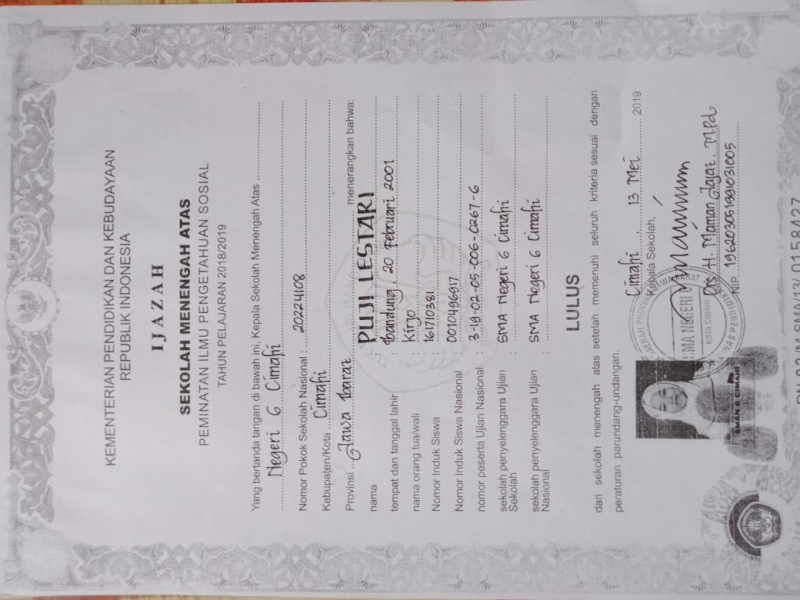 KEMENTERIAN PENDIDIKAN DAN KEBUDAYAAN
REPUBLIK INDONESIA
IJAZAH
SEKOLAH MENENGAH ATAS
PEMINATAN ILMU PENGETAHUAN SOSIAL
TAHUN PELAJARAN 2018/2019
Yang bertanda tangan di bawah ini, Kepala Sekolah Menengah Atas
Negeri 6 Cimahi
Nomor Pokok Sekolah Nasional : 20224108
Kabupaten/Kota Cimahi
Provinsi Jawa Barat menerangkan bahwa:
nama : PUJI LESTARI
tempat dan tanggal lahir : Bandung, 20 Februari 2001
nama orang tua/wali : Kirjo
Nomor Induk Siswa : 161710381
Nomor Induk Siswa Nasional : 0010496917
nomor peserta Ujian Nasional : 3-19-02-05-006-0267-6
sekolah penyelenggara Ujian Sekolah : SMA Negeri 6 Cimahi
sekolah penyelenggara Ujian Nasional : SMA Negeri 6 Cimahi
LULUS
dari sekolah menengah atas setelah memenuhi seluruh kriteria sesuai dengan
peraturan perundang-undangan.
Cimahi, 13 Mei 2019
Kepala Sekolah,
Drs. H. Maman Jajat, M.Pd
NIP. 196203051991031005
SMAN 6 CIMAHI